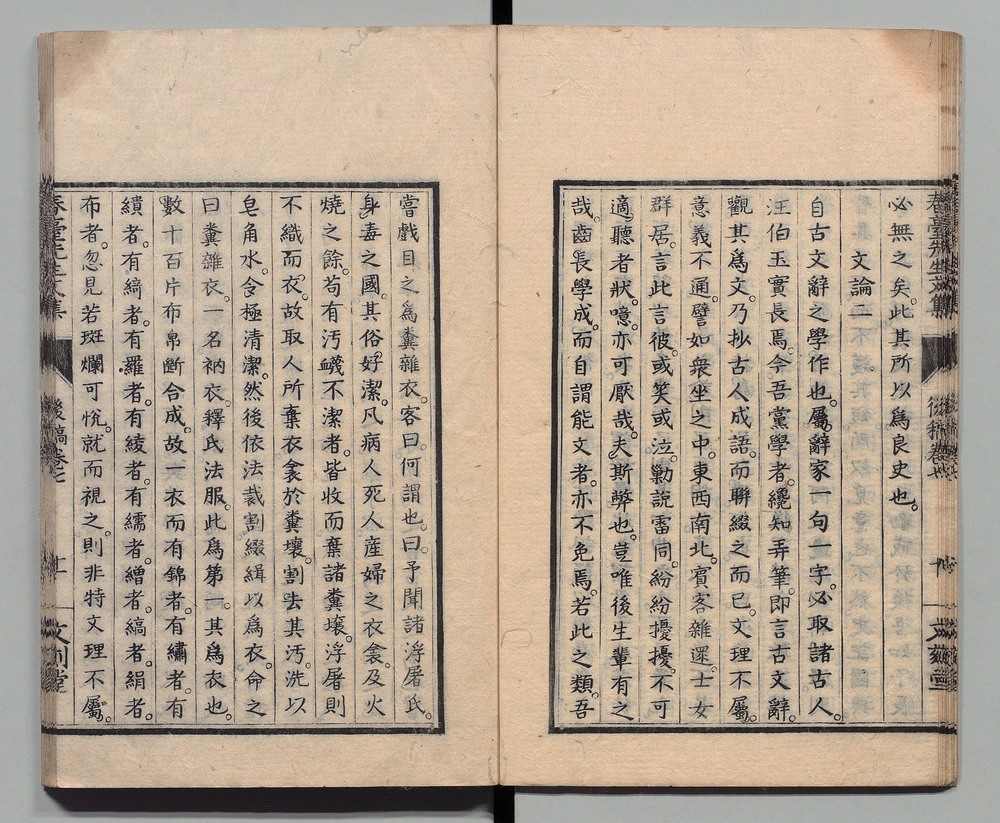 必無之矣。此其所以爲良史也。
文論二
自古文辭之學作也。屬辭家一句一字。必取諸古人。
汪伯玉實長焉。今吾黨學者。纔知弄筆。即言古文辭。
觀其爲文。乃抄古人成語。而聯綴之而已。文理不屬。
意義不通。譬如衆坐之中。東西南北。賓客雜遝。士女
群居。言此言彼。或笑或泣。勦說雷同。紛紛擾擾。不可
適聽者狀。噫。亦可厭哉。夫斯弊也。豈唯後生輩有之
哉。齒長學成。而自謂能文者。亦不免焉。若此之類。吾
嘗戲目之爲糞雜衣。客曰。何謂也。曰。予聞諸浮屠氏。
身毒之國。其俗好潔。凡病人死人產婦之衣衾。及火
燒之餘。苟有汚衊不潔者。皆收而棄諸糞壤。浮屠則
不織而衣。故取人所棄衣衾於糞壤。割去其汚。洗以
皂角水。令極清潔。然後依法裁割綴緝以爲衣。命之
曰糞雜衣。一名衲衣。釋氏法服。此爲第一。其爲衣也。
數十百片布帛斷合成。故一衣而有錦者。有繡者。有
繢者。有綺者。有羅者。有綾者。有繻者。繒者。縞者。絹者。
布者。忽見若斑爛可恱。就而視之。則非特文理不屬。
後稿卷七